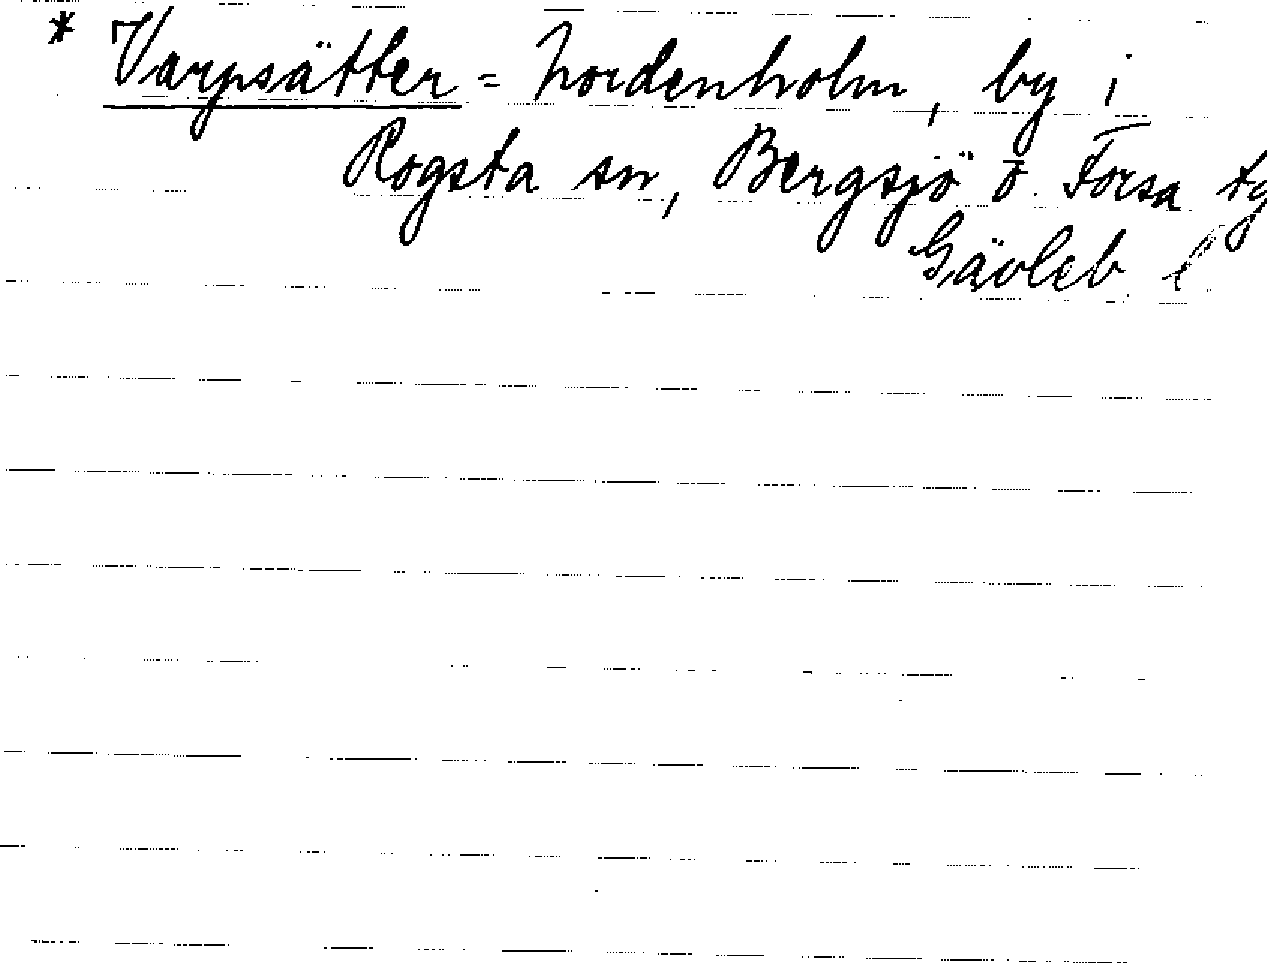 * Varpsätter = Nordenholm, by i
Rogsta sn, Bergsjö o Forsa tg
Gävleb. l